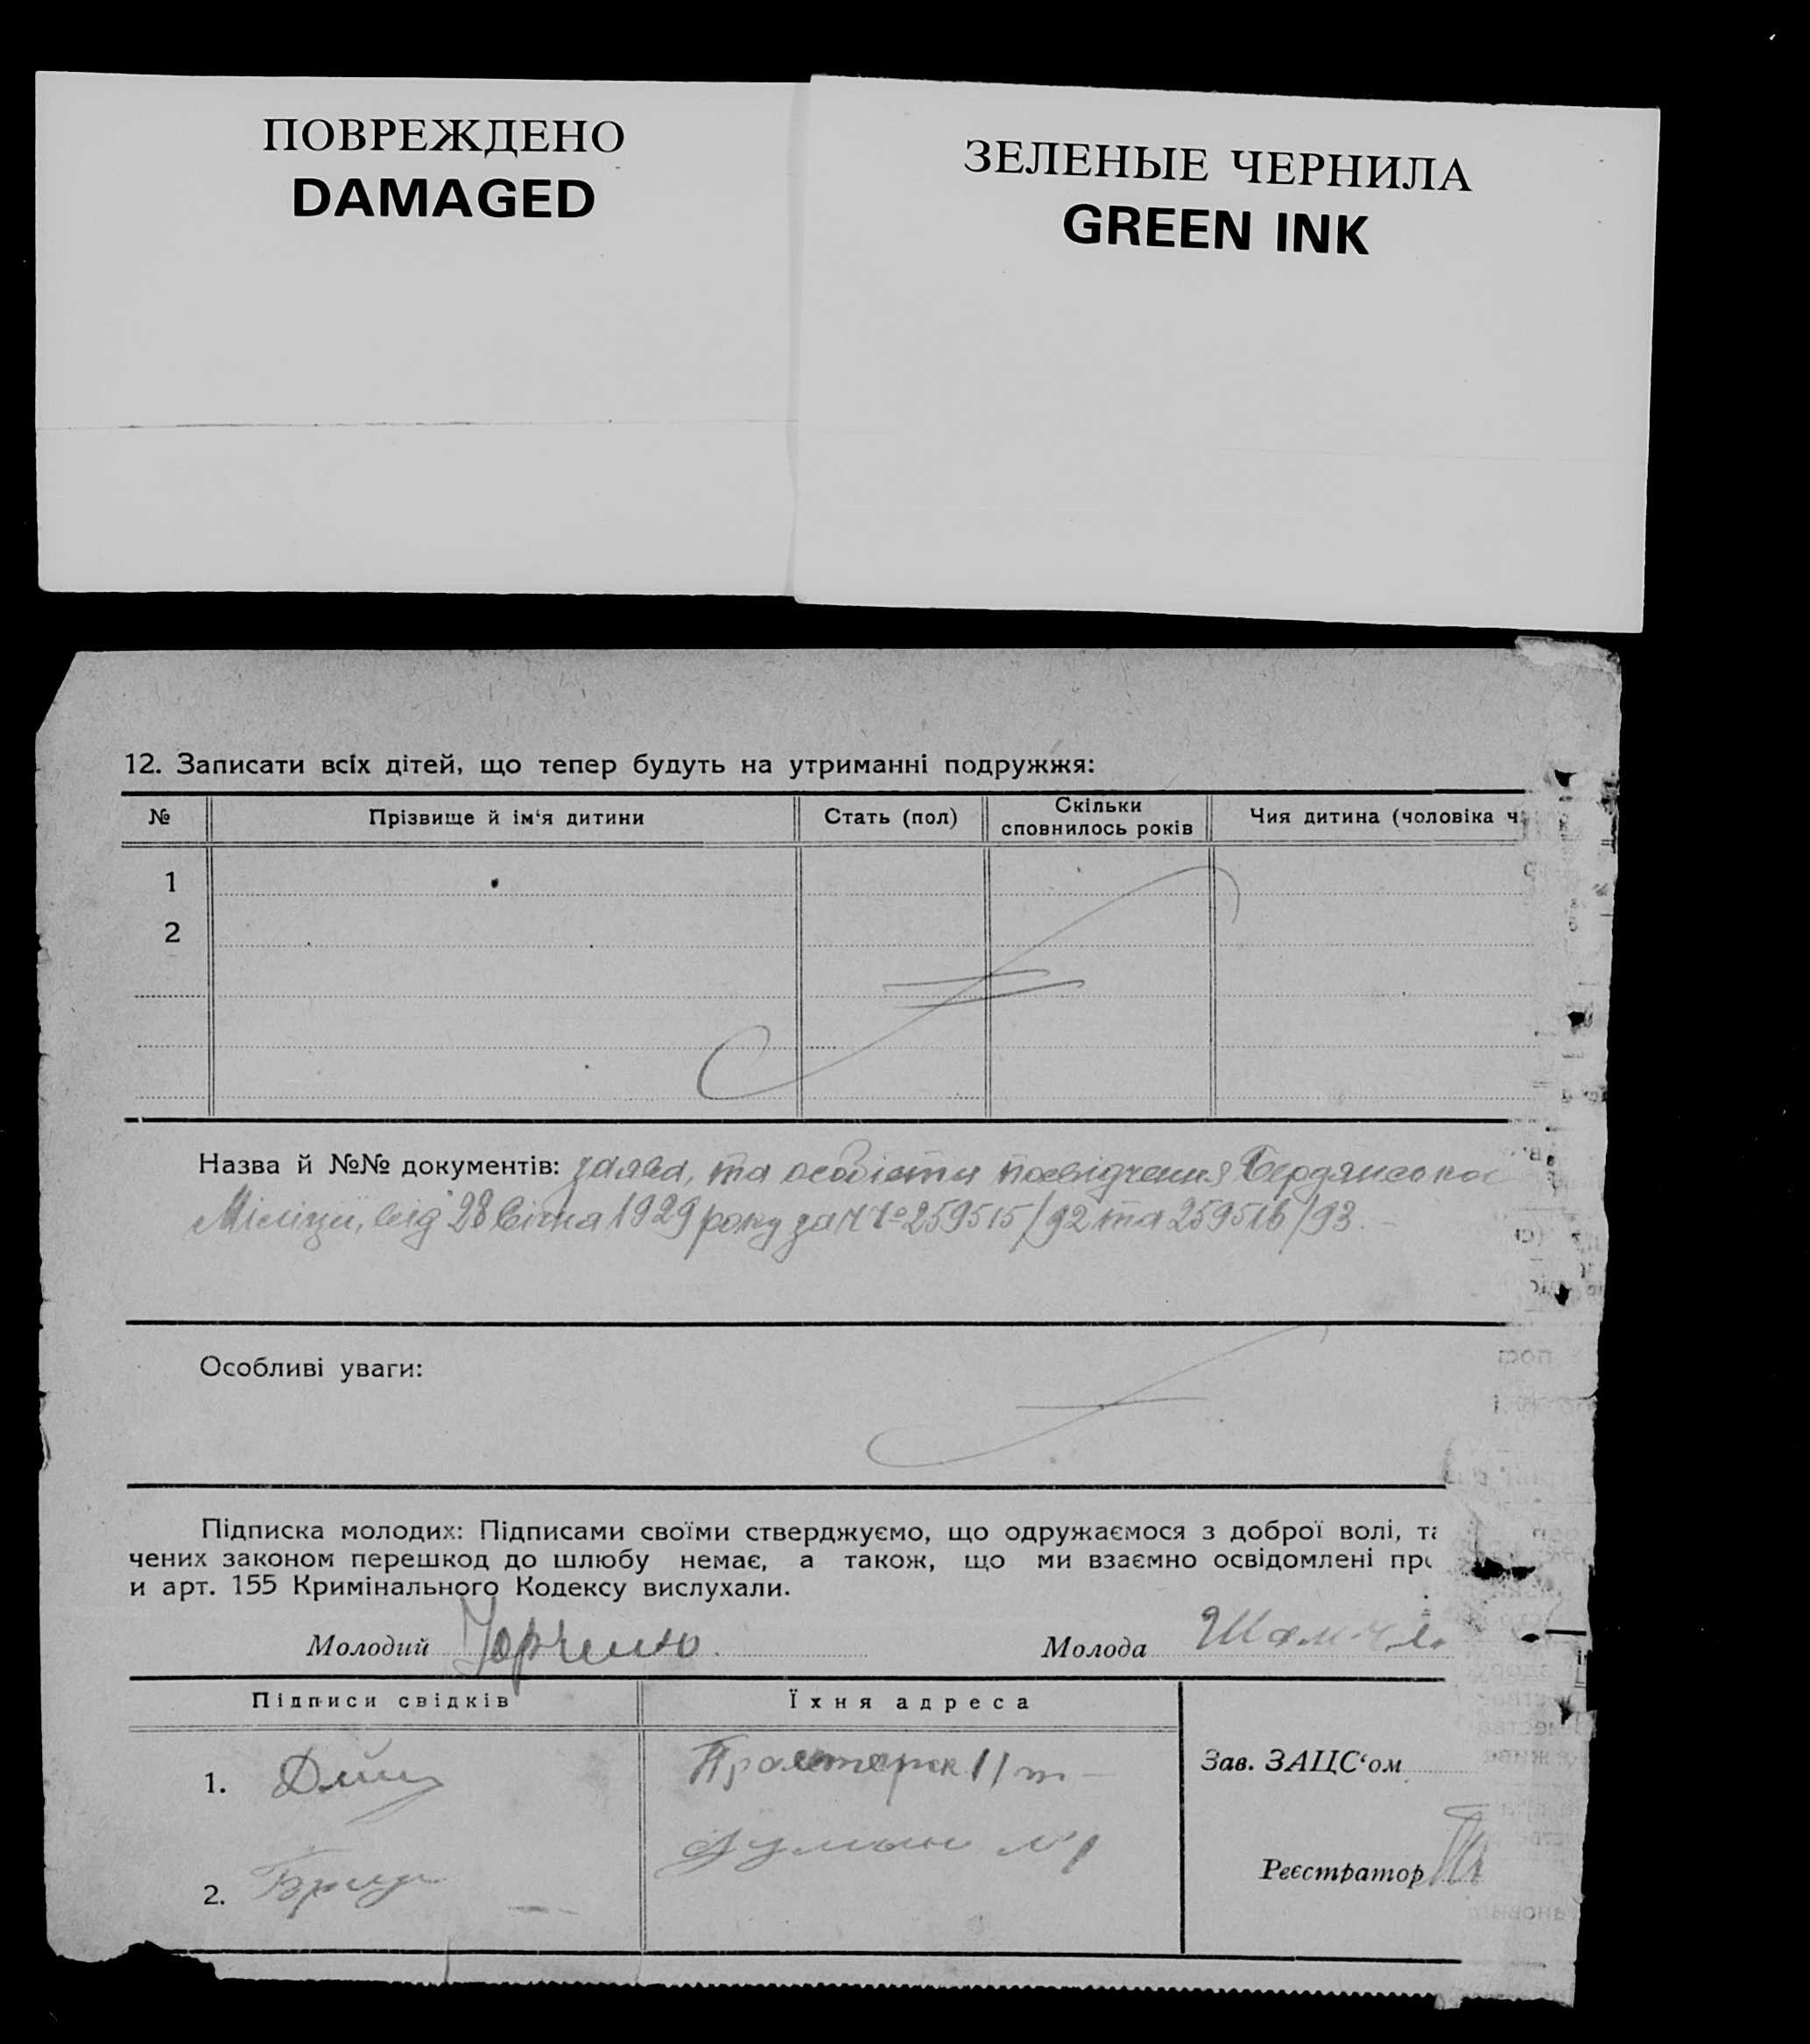 ПОВРЕЖДЕНО
DAMAGED
ЗЕЛЕНЫЕ ЧЕРНИЛА
GREEN INK
12. Записати всіх дітей, що тепер будуть на утриманні подружжя:
№ Прізвище й ім‘я дитини Стать (пол) Скільки сповнилось років Чия дитина (чоловіка ч
1
2
Назва й №№ документів: заява, та особисті посвідчення Бердянської
Міліції, від 28 Січня 1929 року за №№ 259515/92 та 259516/93.
Особливі уваги:
Підписка молодих: Підписами своїми стверджуємо, що одружаємося з доброї волі, та
чених законом перешкод до шлюбу немає, а також, що ми взаємно освідомлені про
и арт. 155 Кримінального Кодексу вислухали.
Молодий Юрченко. Молода
Підписи свідків Їхня адреса
1. Пролетарск 11
Зав. ЗАЦС‘ом
2. №1
Реєстратор